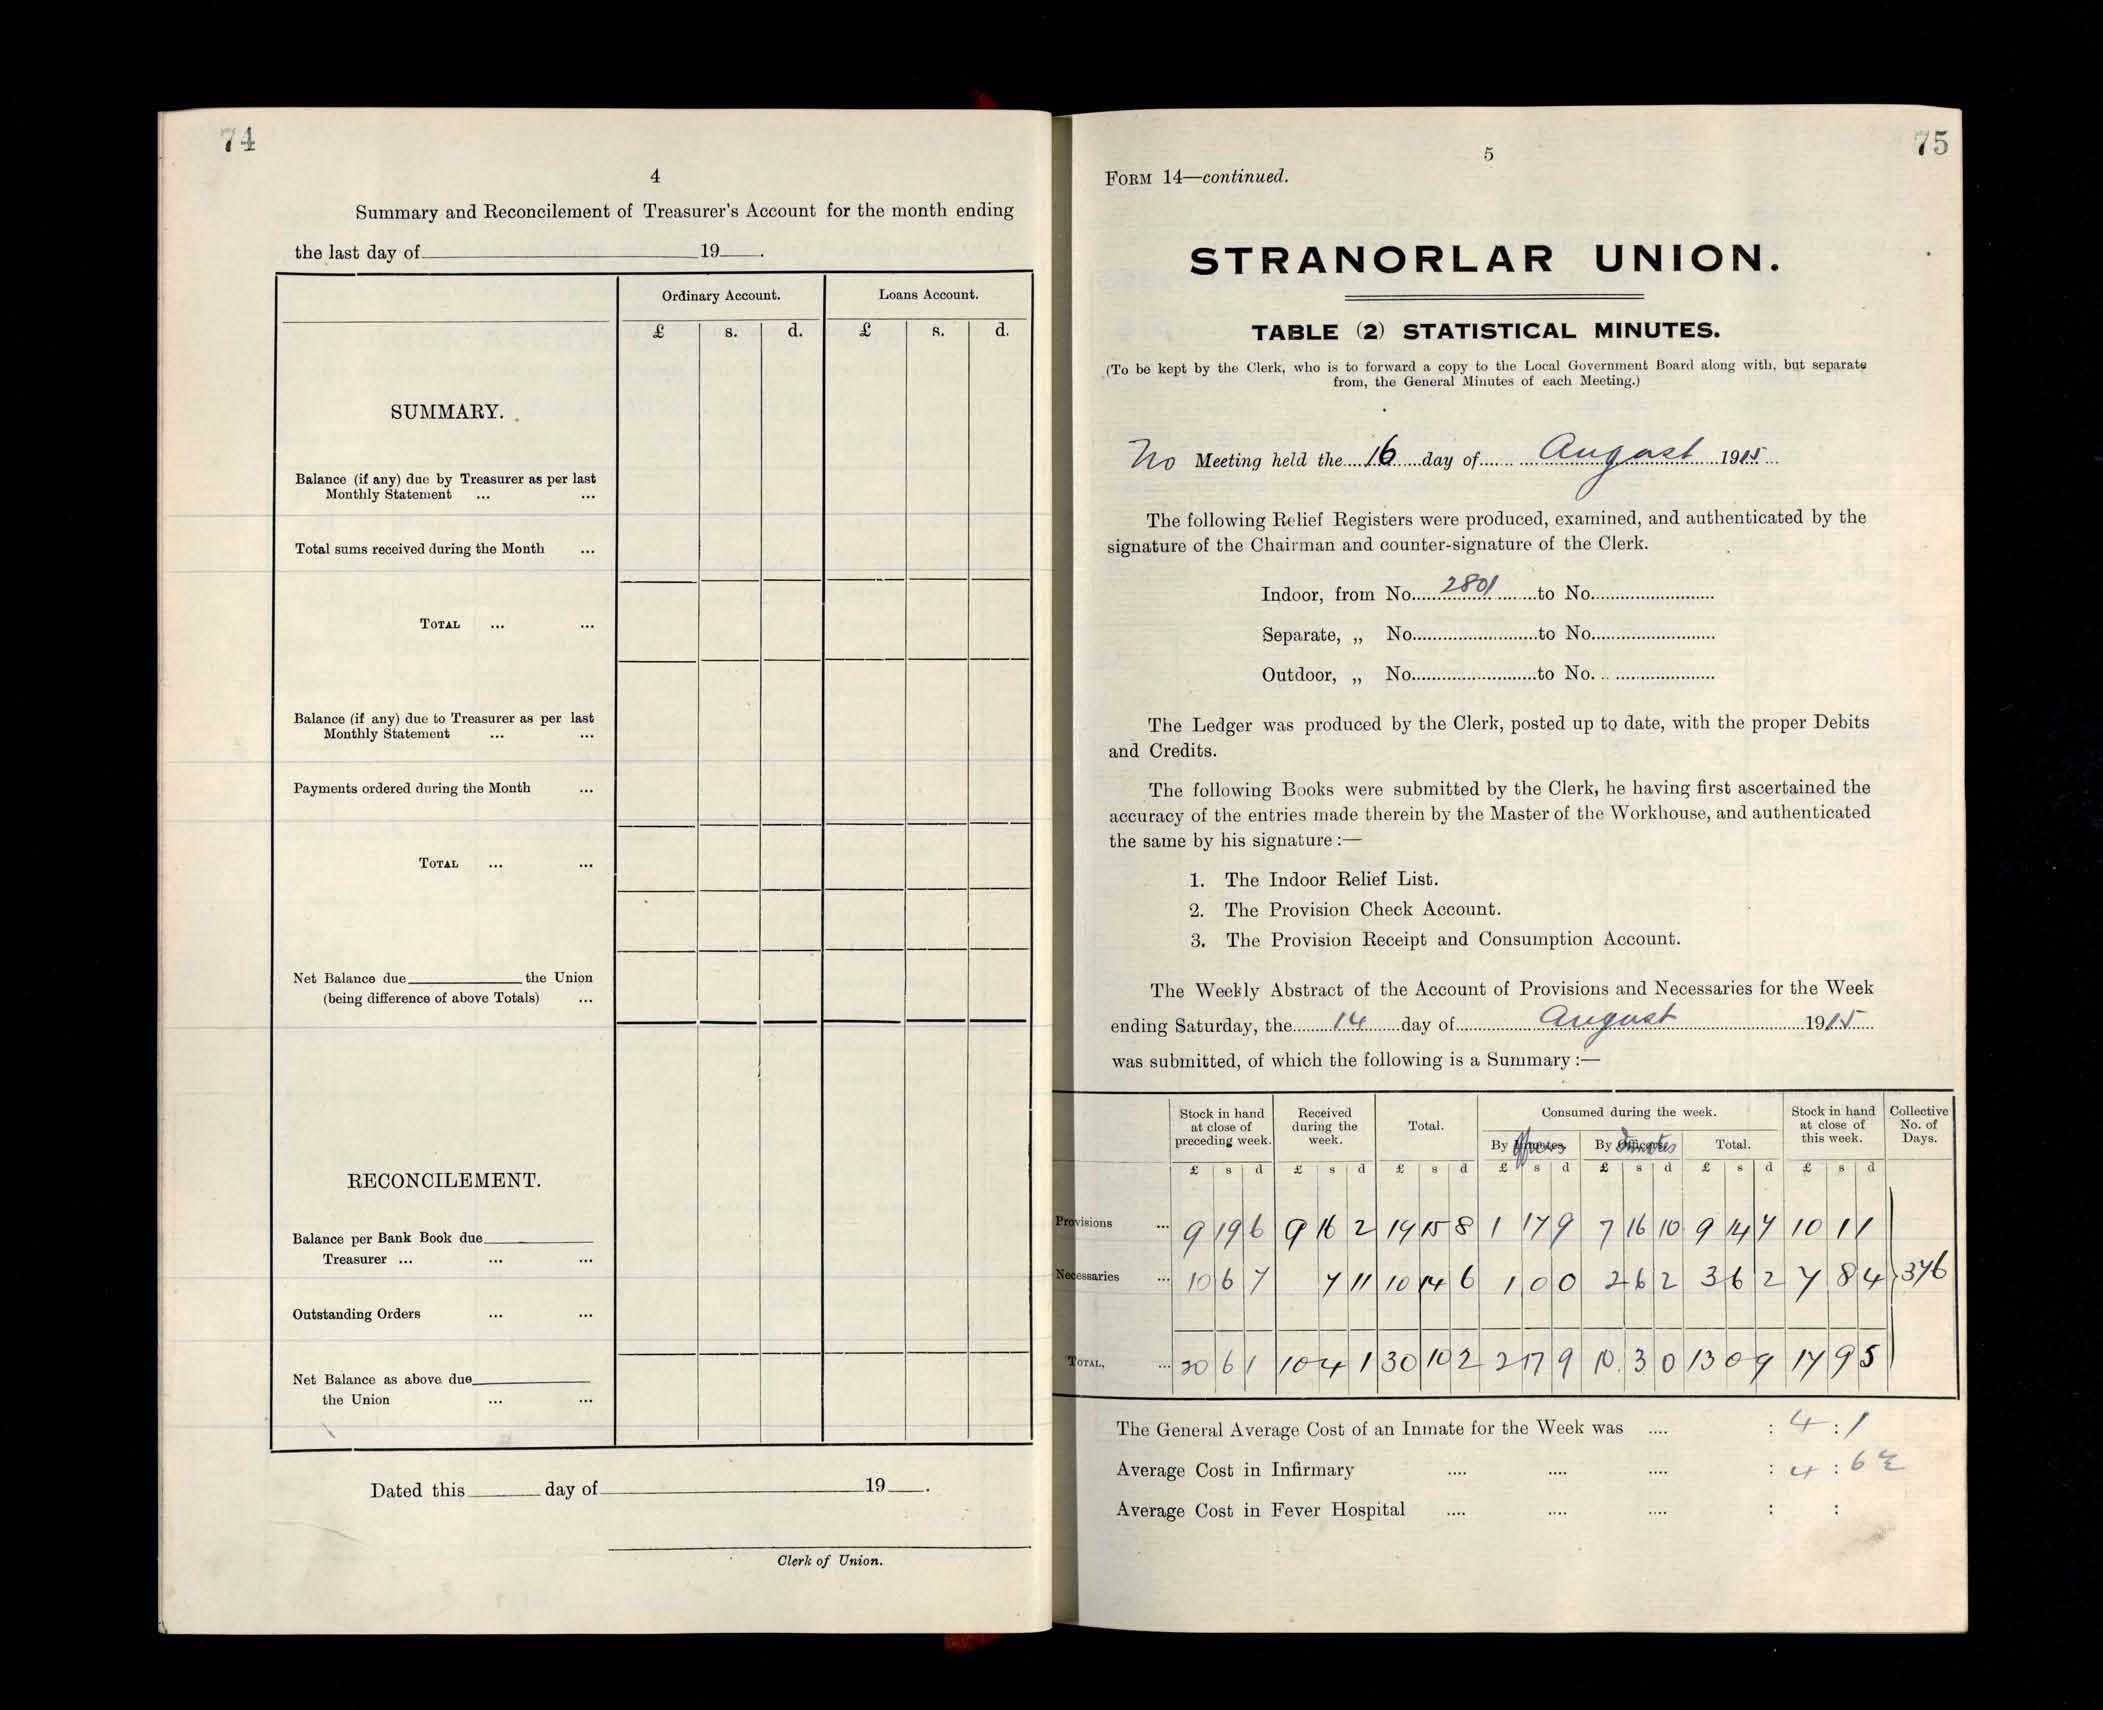 74
4
Summary and Reconcilement of Treasurer's Account for the month ending
the last day of 19 .
Ordinary Account. Loans Account.
£ s. d. £ s. d.
SUMMARY.
Balance (if any) due by Treasurer as per last
Monthly Statement ... ...
Total sums received during the Month ...
TOTAL ... ...
Balance (if any) due to Treasurer as per last
Monthly Statement ... ...
Payments ordered during the Month ...
TOTAL ... ...
Net Balance due the Union
(being difference of above Totals) ...
RECONCILEMENT.
Balance per Bank Book due
Treasurer ... ... ...
Outstanding Orders ... ...
Net Balance as above due
the Union ... ...
Dated this day of 19 .
Clerk of Union.
75
5
FORM 14—continued.
STRANORLAR UNION.
TABLE (2) STATISTICAL MINUTES.
(To be kept by the Clerk, who is to forward a copy to the Local Government Board along with, but separate
from, the General Minutes of each Meeting.)
No Meeting held the 16 day of August 1915
The following Relief Registers were produced, examined, and authenticated by the
signature of the Chairman and counter-signature of the Clerk.
Indoor, from No. 2801 to No.
Separate, „ No. to No.
Outdoor, „ No. to No.
The Ledger was produced by the Clerk, posted up to date, with the proper Debits
and Credits.
The following Books were submitted by the Clerk, he having first ascertained the
accuracy of the entries made therein by the Master of the Workhouse, and authenticated
the same by his signature :—
1. The Indoor Relief List.
2. The Provision Check Account.
3. The Provision Receipt and Consumption Account.
The Weekly Abstract of the Account of Provisions and Necessaries for the Week
ending Saturday, the 14 day of August 1915
was submitted, of which the following is a Summary :—
Stock in hand at close of preceding week. Received during the week. Total. Consumed during the week. Stock in hand at close of this week. Collective No. of Days.
By Inmates Officers By Officers Inmates Total.
£ s d £ s d £ s d £ s d £ s d £ s d £ s d
Provisions ... 9 19 6 9 16 2 19 15 8 1 17 9 7 16 10 9 14 7 10 1 1
Necessaries ... 10 6 7 7 11 10 14 6 1 0 0 2 6 2 3 6 2 7 8 4 376
TOTAL, ... 20 6 1 10 4 1 30 10 2 2 17 9 10 3 0 13 0 9 17 9 5
The General Average Cost of an Inmate for the Week was .... : 4 : 1
Average Cost in Infirmary .... .... .... : 4 : 6½
Average Cost in Fever Hospital .... .... .... : :